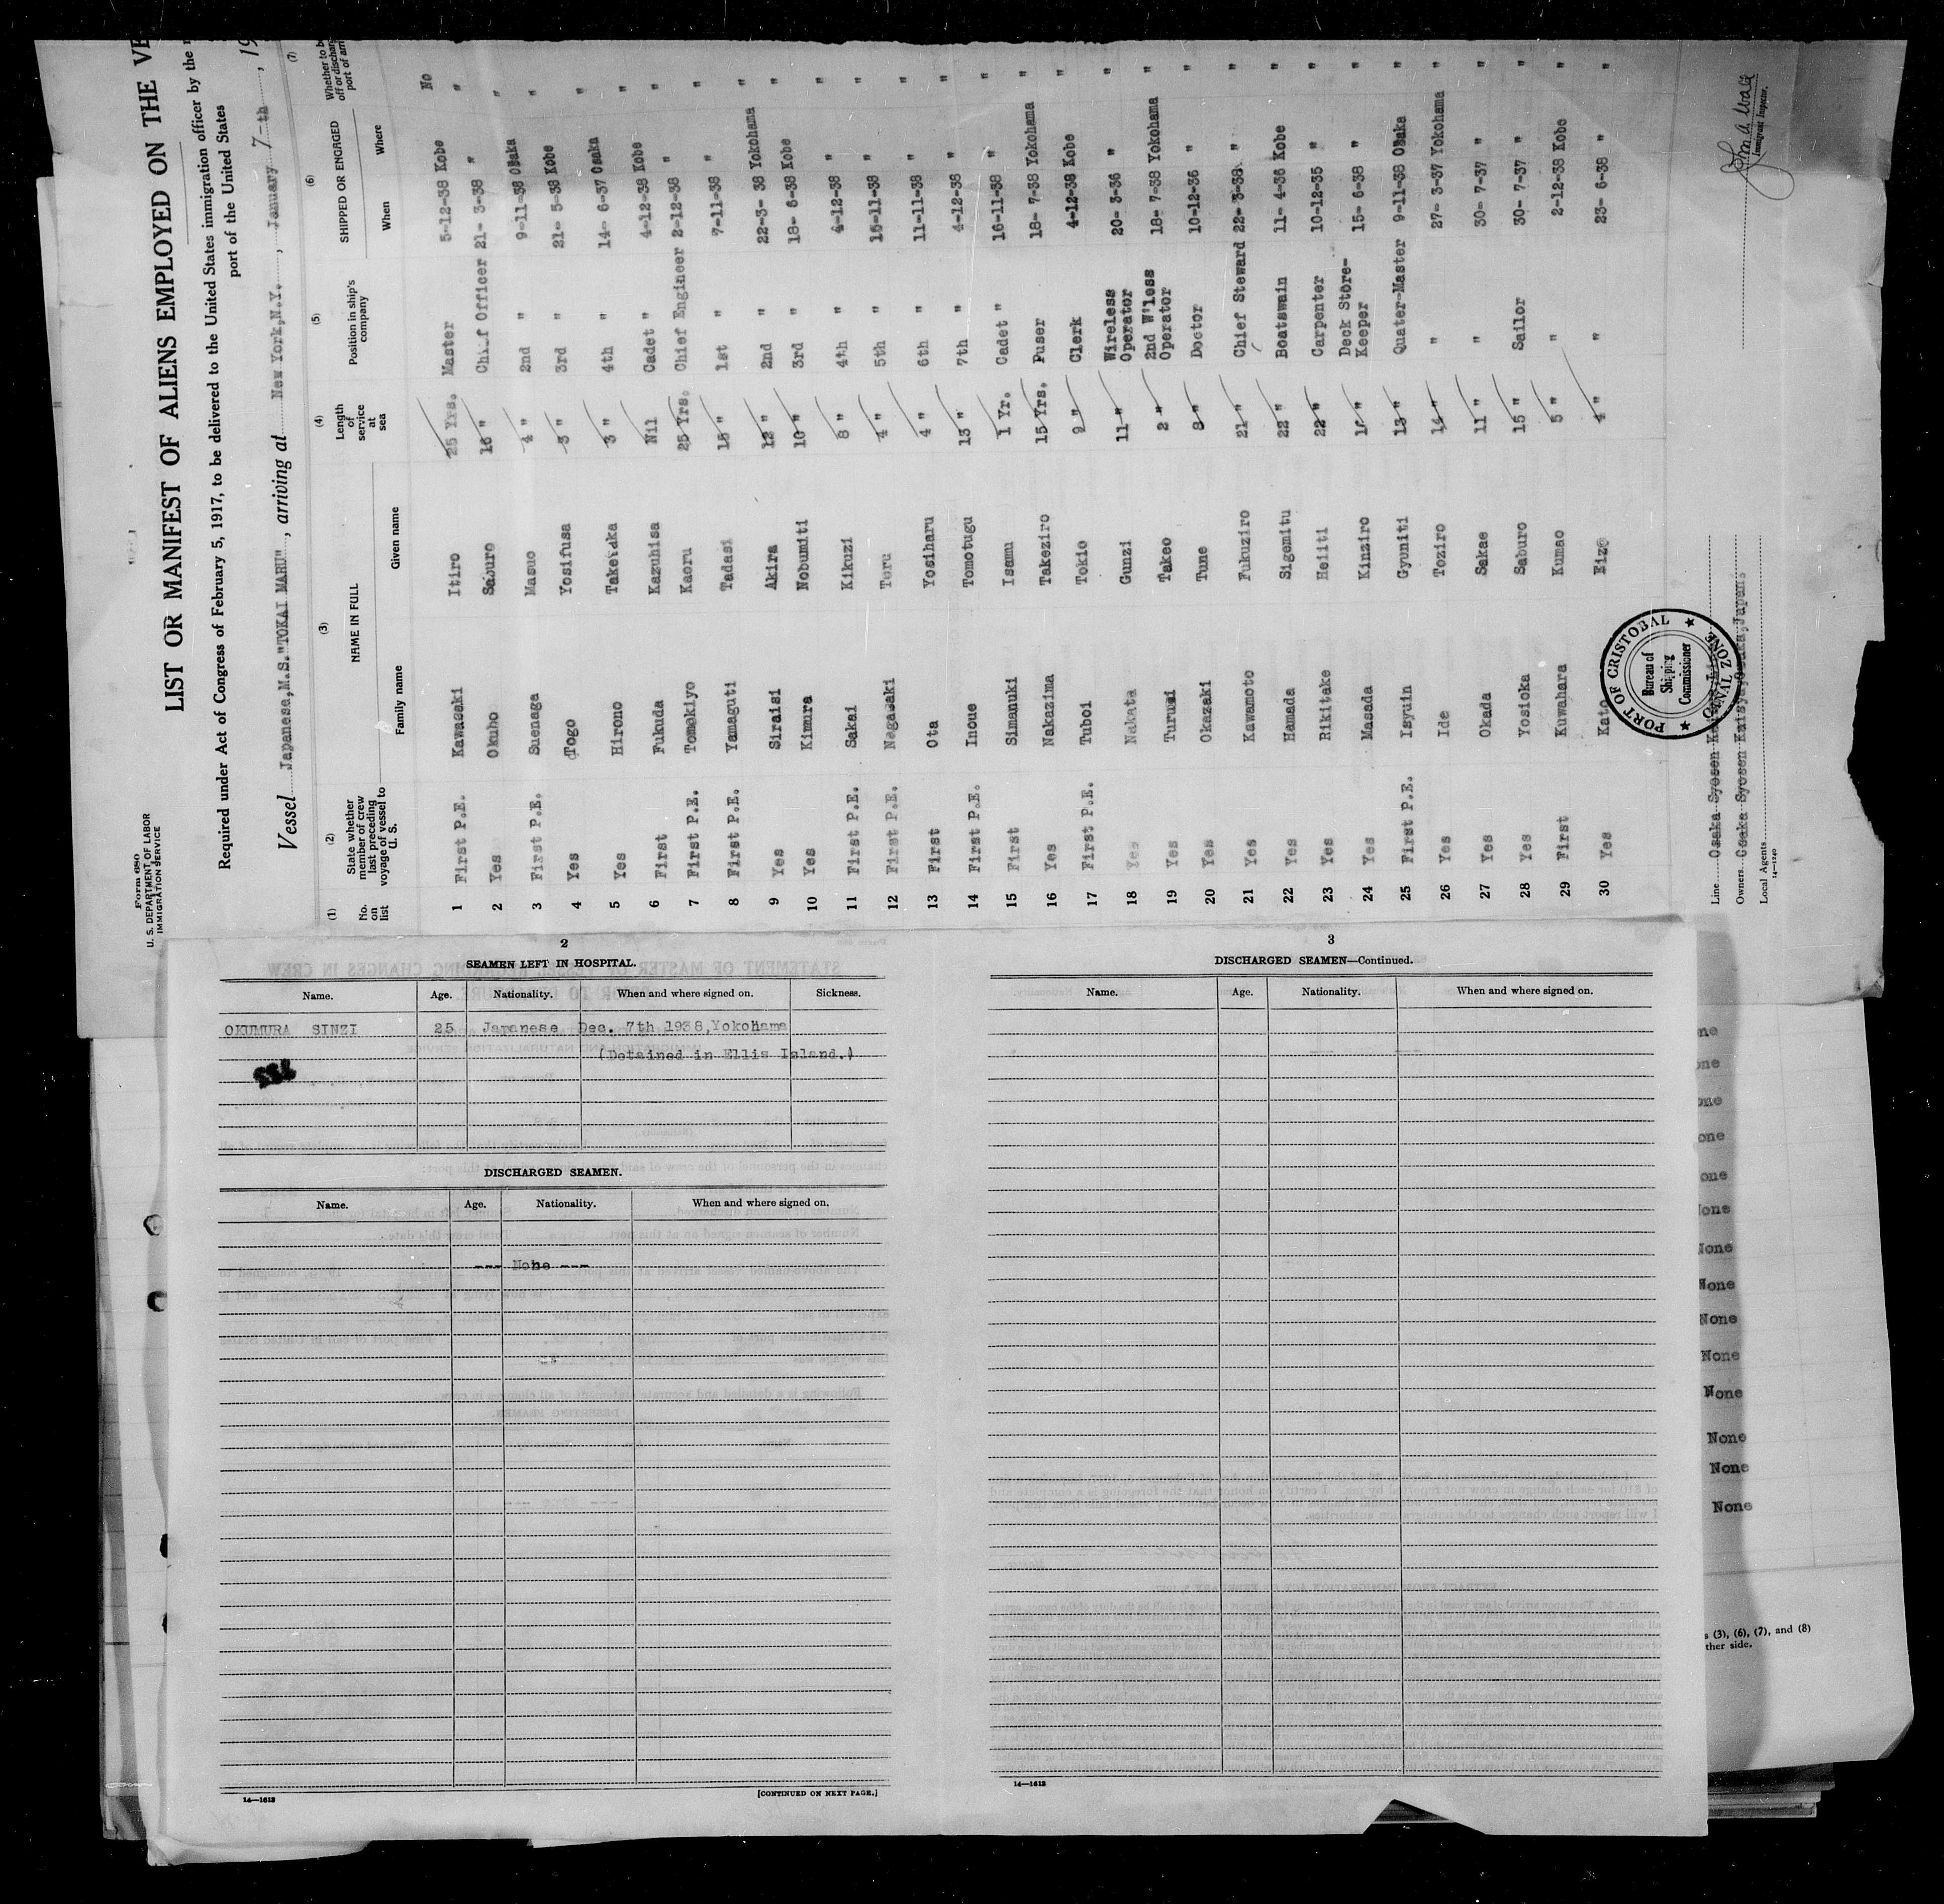 Form 680
U. S. DEPARTMENT OF LABOR
IMMIGRATION SERVICE
LIST OR MANIFEST OF ALIENS EMPLOYED ON THE VE
Required under Act of Congress of February 5, 1917, to be delivered to the United States immigration officer by the
port of the United States
Vessel Japanese,M.S."TOKAI MARU", arriving at New York,N.Y., January 7-th, 19
(1) (2) (3) (4) (5) (6) (7)
No. on list
State whether member of crew last preceding voyage of vessel to U. S.
NAME IN FULL
Family name Given name
Length of service at sea
Position in ship's company
SHIPPED OR ENGAGED
When Where
Whether to be
off or discharg
port of arri
1 First P.E. Kawasaki Itiro 25 Yrs. Master 5-12-38 Kobe No
2 Yes Okubo Saburo 16 " Chief Officer 21- 3-38 " "
3 First P.E. Suenaga Masuo 4 " 2nd " 9-11-38 Osaka "
4 Yes Togo Yosifusa 3 " 3rd " 21- 5-38 Kobe "
5 Yes Hirono 3 " 4th " 14- 6-37 Osaka "
6 First Fukuda Kazuhisa Nil Cadet " 4-12-38 Kobe "
7 First P.E. Tomekiyo Kaoru 25 Yrs. Chief Engineer 2-12-38 " "
8 First P.E. Yamaguti Tadasi 18 " 1st " 7-11-38 " "
9 Yes Siraisi Akira 12 " 2nd " 22-3- 38 Yokohama "
10 Yes Kimura Nobumiti 10 " 3rd " 18- 6-38 Kobe "
11 First P.E. Sakai Kikuzi 8 " 4th " 4-12-38 " "
12 First P.E. Nagasaki Toru 4 " 5th " 15-11-38 " "
13 First Ota Yosiharu 4 " 6th " 11-11-38 " "
14 First P.E. Inoue Tomotugu 13 " 7th " 4-12-38 " "
15 First Simanuki Isamu 1 Yr. Cadet " 16-11-38 " "
16 Yes Nakazima Takeziro 15 Yrs. Puser 18- 7-38 Yokohama "
17 First P.E. Tuboi Tokio 9 " Clerk 4-12-38 Kobe "
18 Yes Nakata Gunzi 11 " Wireless Operator 20- 3-36 " "
19 Yes Turumi Takeo 2 " 2nd W'less Operator 18- 7-38 Yokohama "
20 Yes Okazaki Tune 8 " Doctor 10-12-36 " "
21 Yes Kawamoto Fukuziro 21 " Chief Steward 22- 3-38 " "
22 Yes Hamada Sigemitu 22 " Boatswain 11- 4-36 Kobe "
23 Yes Rikitake Heiiti 22 " Carpenter 10-12-35 " "
24 Yes Masada Kinziro " Deck Store-Keeper 15- 6-38 " "
25 First P.E. Isyuin Gyuniti 13 " Quater-Master 9-11-38 Osaka "
26 Yes Ide Toziro 14 " " 27- 3-37 Yokohama "
27 Yes Okada Sakae 11 " " 30- 7-37 " "
28 Yes Yosioka Saburo 15 " Sailor 30- 7-37 " "
29 First Kuwahara Kumao 5 " " 2-12-38 Kobe "
30 Yes Kato Eizo 4 " " 23- 6-38 " "
PORT OF CRISTOBAL
Bureau of
Shipping
Commissioner
CANAL ZONE
Line Osaka Syosen
Owners Osaka Syosen Kaisya, Osaka,Japan.
Local Agents
14—1240
Immigrant Inspector.
2
SEAMEN LEFT IN HOSPITAL.
Name. Age. Nationality. When and where signed on. Sickness.
OKUMURA SINZI 25 Japanese Dec. 7th 1938,Yokohama
(Detained in Ellis Island.)
DISCHARGED SEAMEN.
Name. Age. Nationality. When and where signed on.
--- None ---
14—1613
[CONTINUED ON NEXT PAGE.]
3
DISCHARGED SEAMEN—Continued.
Name. Age. Nationality. When and where signed on.
14—1613
None
None
None
None
None
None
None
None
None
s (3), (6), (7), and (8)
ther side.